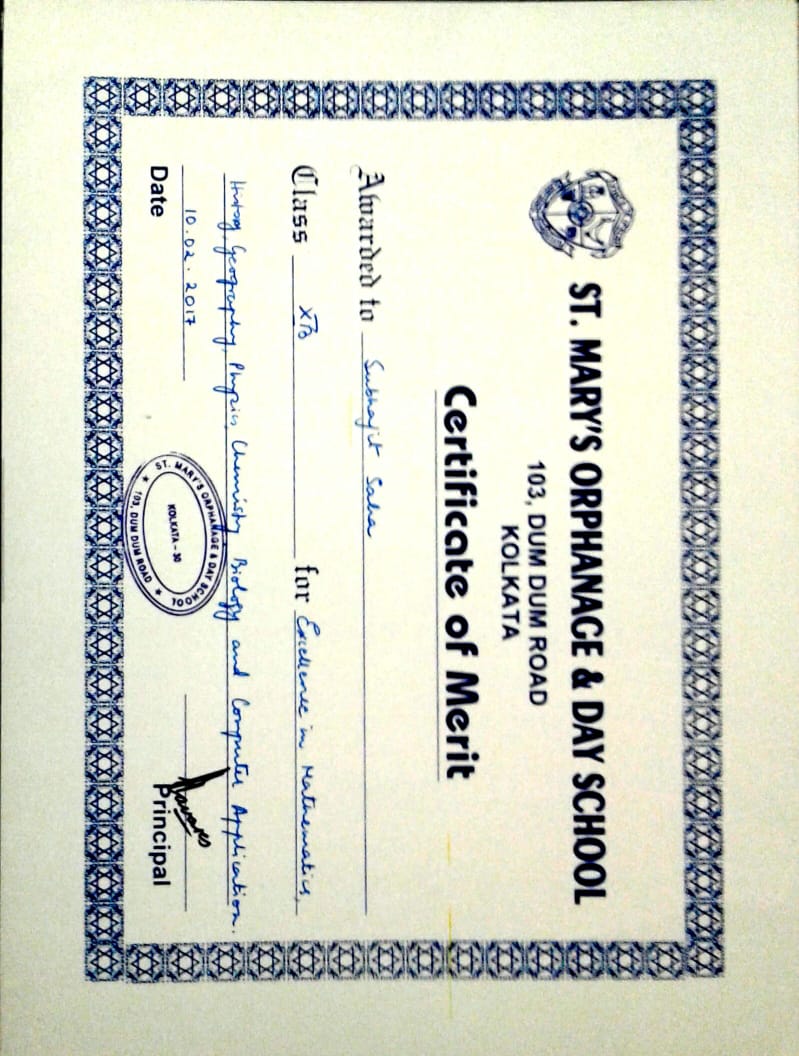 ST. MARY'S ORPHANAGE & DAY SCHOOL
103, DUM DUM ROAD
KOLKATA
Certificate of Merit
Awarded to Subhajit Saha
Class XB for Excellence in Mathematics,
History, Geography, Physics, Chemistry, Biology and Computer Application.
10.02.2017
Date
Principal
ST. MARY'S ORPHANAGE & DAY SCHOOL
KOLKATA - 30
★ 103, DUM DUM ROAD ★